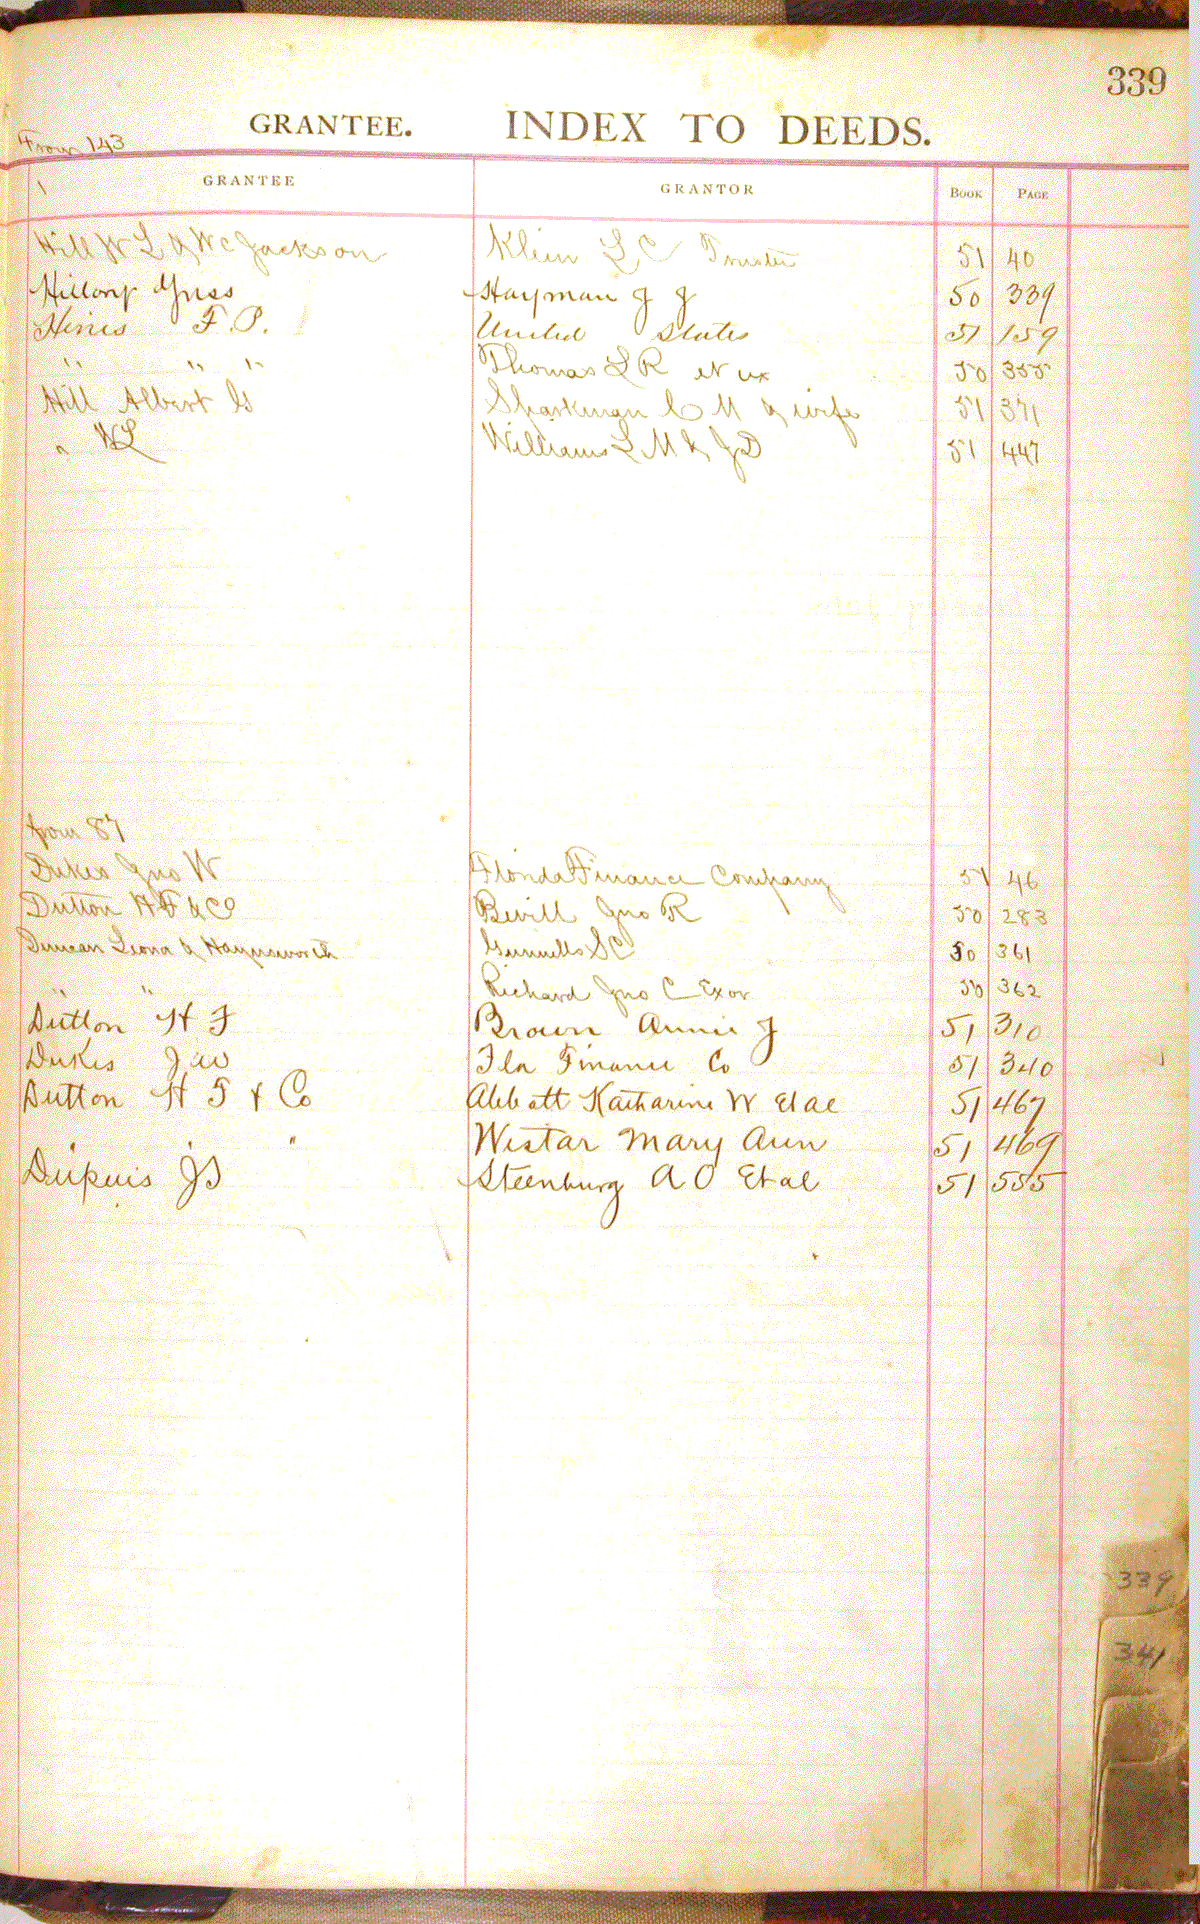 339
GRANTEE. INDEX TO DEEDS.
From 143
GRANTEE GRANTOR BOOK PAGE
Hill W L & W C Jackson Klein L C Trustee 51 40
Guss Hayman J J 50 339
Hines F. P. United States 51 159
" " " Thomas L R et ux 50 355
Hill Albert G Sparkman C M & wife 51 371
" W L Williams L M & J D 51 447
from 87
Dukes Jno W Florida Finance Company 51 46
Dutton H F & CO Bevill Jno R 50 283
Duncan Leona & Haynsworth Gunnells S C 50 361
" " Richard Jno C Exor 50 362
Dutton H F Brown Annie J 51 310
Dukes Jas Fla Finance Co 51 340
Dutton H F & Co Abbott Katharine W Et al 51 467
" " " Wistar Mary Ann 51 469
Dupuis J G Steenburg A O Et al 51 555
339
341